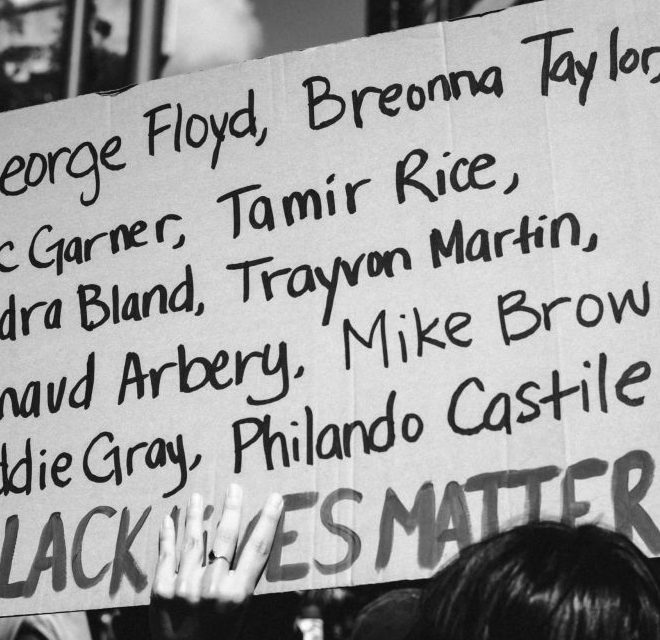 eorge Floyd, Breonna Taylor,
c Garner, Tamir Rice,
dra Bland, Trayvon Martin,
maud Arbery, Mike Brow
ddie Gray, Philando Castile
LACK LiVES MATTER